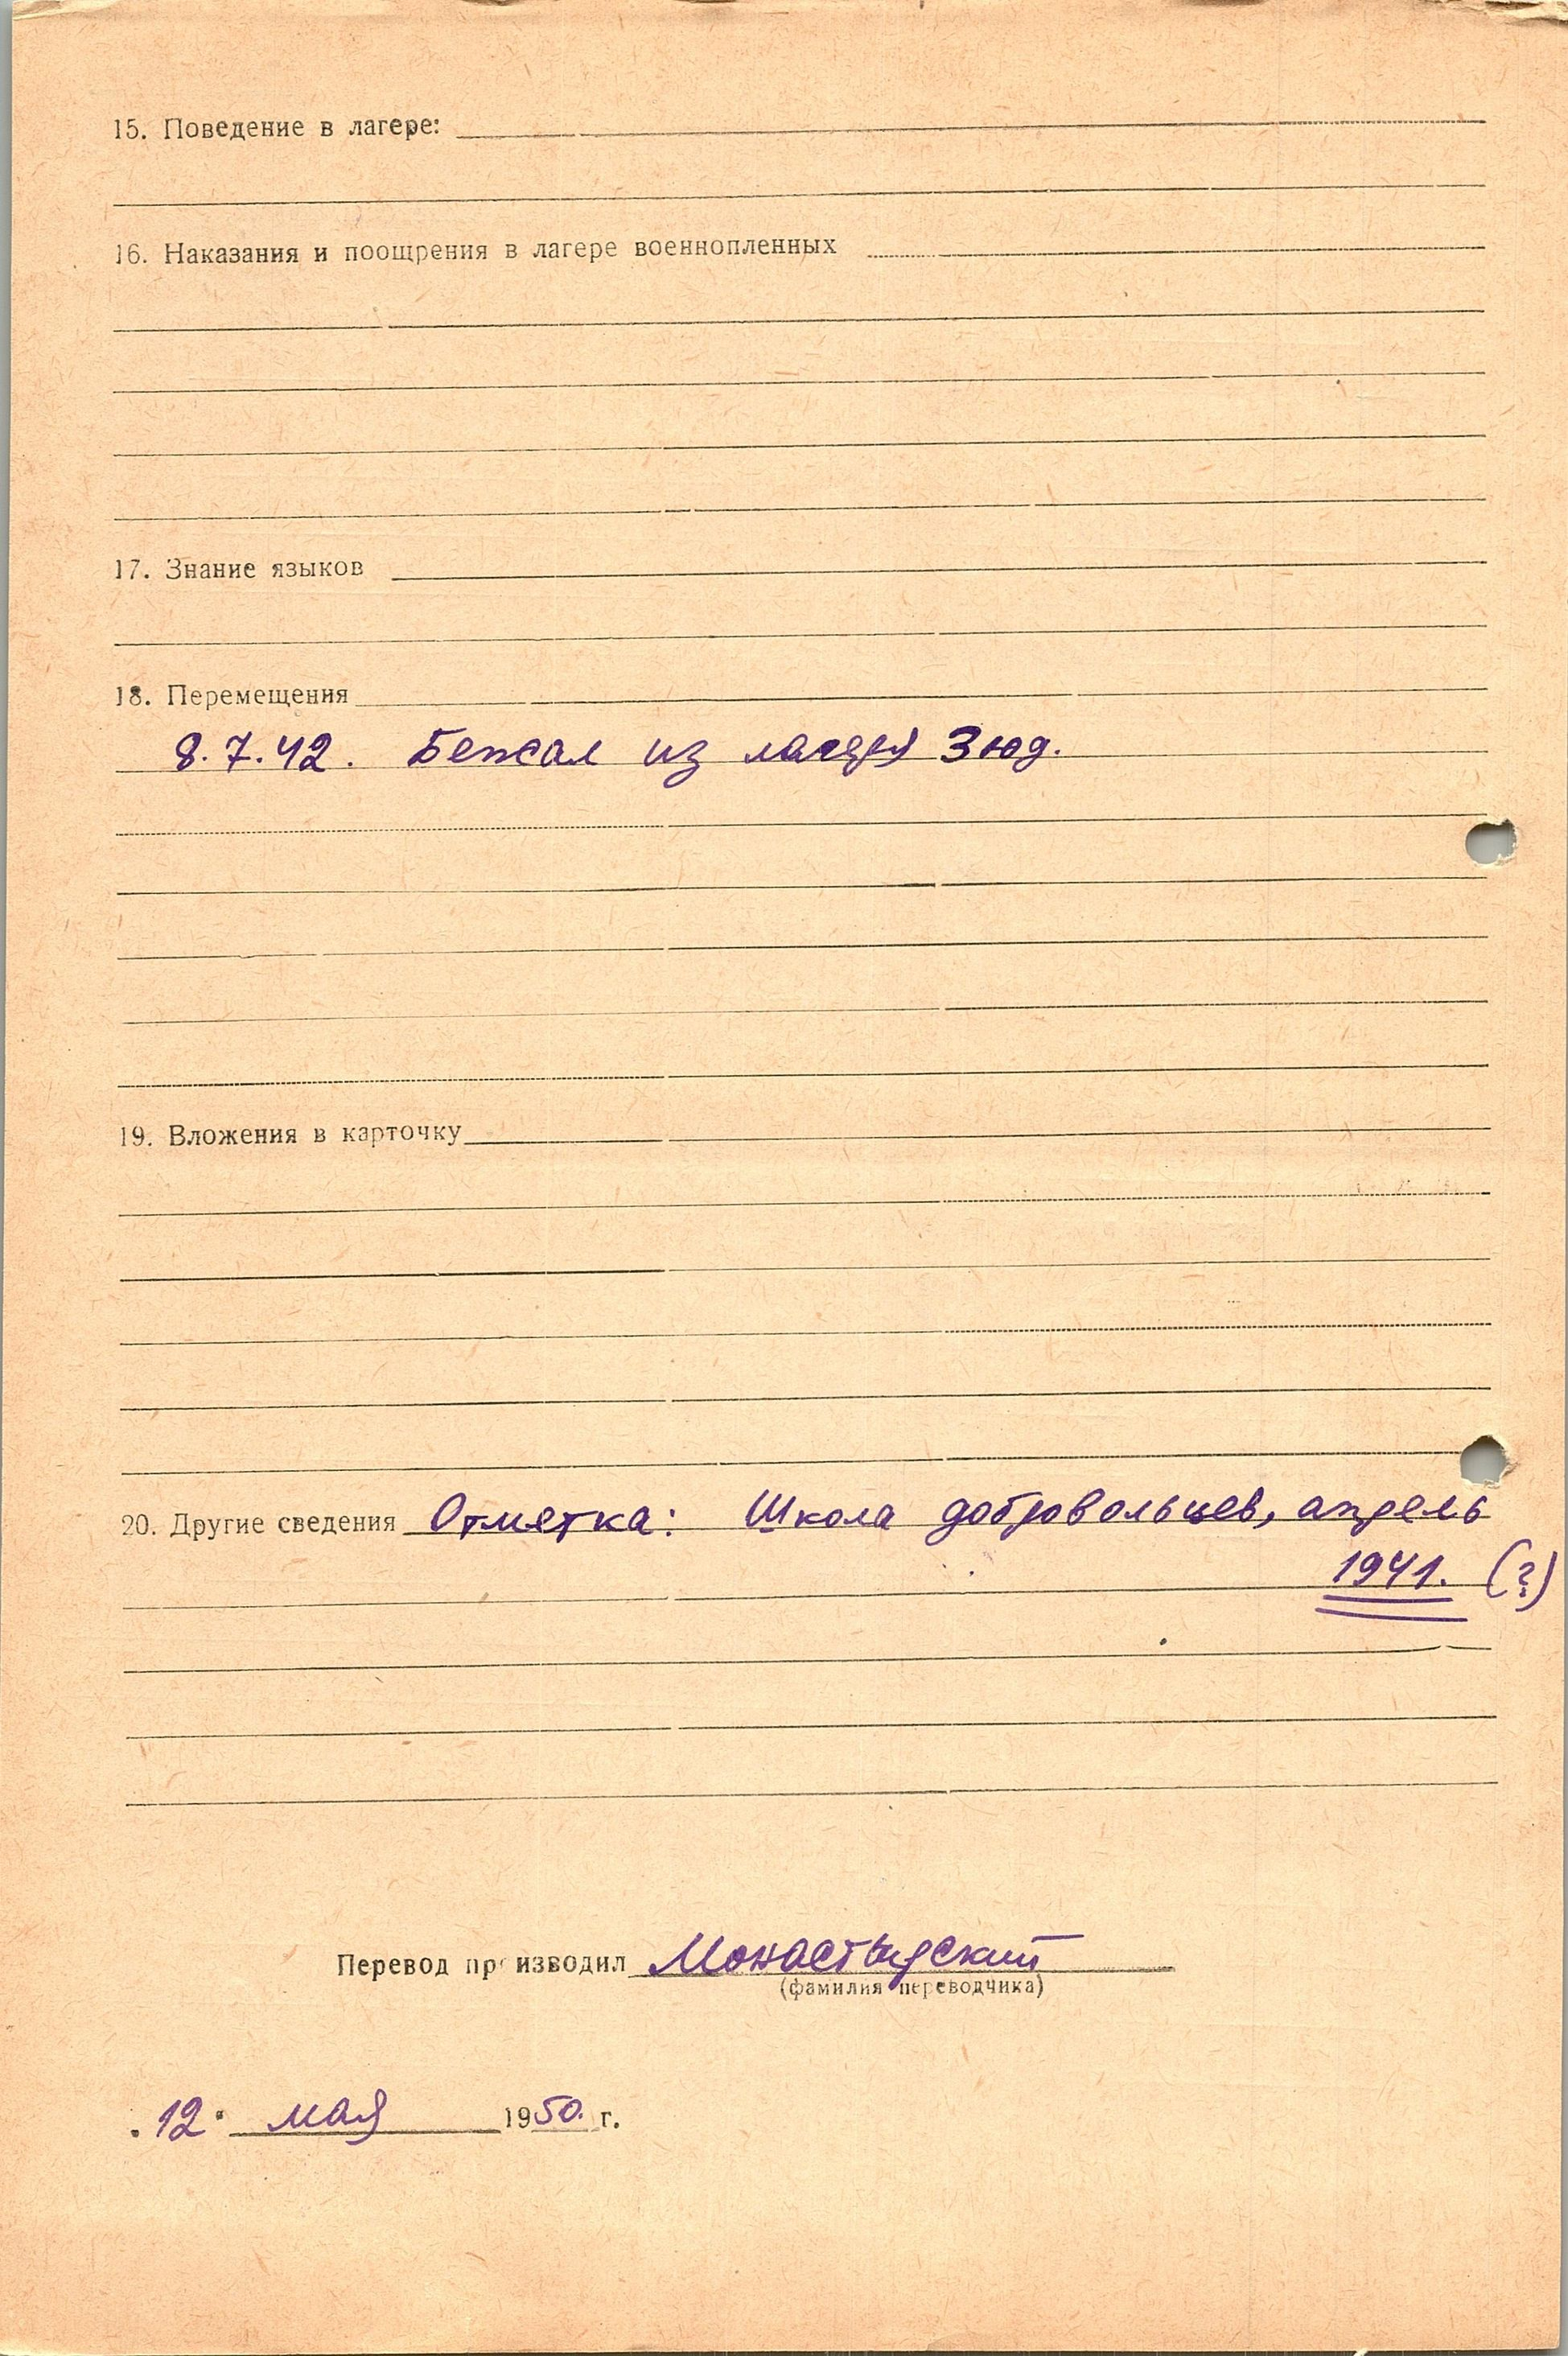 15. Поведение в лагере:
16. Наказания и поощрения в лагере военнопленных
17. Знание языков
18. Перемещения
8.7.42. Бежал из лагеря Зюд.
19. Вложения в карточку
20. Другие сведения Отметка: Школа добровольцев, апрель
1941. (?)
Перевод производил Монастырский
(фамилия переводчика)
"12" мая 1950 г.